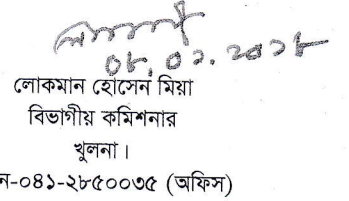 ০৮.০১.২০১৮
লোকমান হোসেন মিয়া
বিভাগীয় কমিশনার
খুলনা।
ন-০৪১-২৮৫০০৩৫ (অফিস)